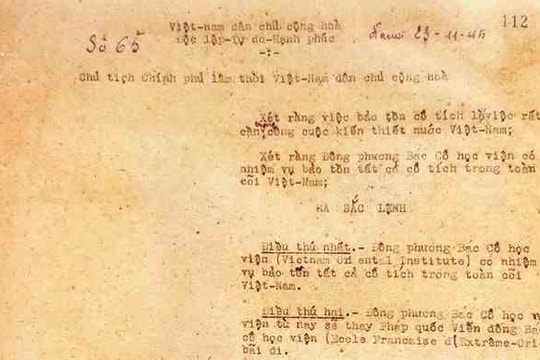 112
Việt-nam dân chủ cộng hoà
Độc lập-Tự do-Hạnh phúc
Số 65
23-11-45
Chủ tịch Chính phủ lâm thời Việt-Nam dân chủ cộng hoà
Xét rằng việc bảo tồn cổ tích là việc rất
cần trong công cuộc kiến thiết nước Việt-Nam;
Xét rằng Đông phương Bác Cổ học viện có
nhiệm vụ bảo tồn tất cả cổ tích trong toàn
cõi Việt-Nam;
RA SẮC LỆNH
Điều thứ nhất.- Đông phương Bác Cổ học
viện (Vietnam Oriental Institute) có nhiệm
vụ bảo tồn tất cả cổ tích trong toàn cõi
Việt-Nam.
Điều thứ hai.- Đông phương Bác Cổ học v
viện từ nay sẽ thay Pháp quốc Viễn đông Bá
cổ học viện (Ecole Francaise d(Extrême-Ori
bãi đi.